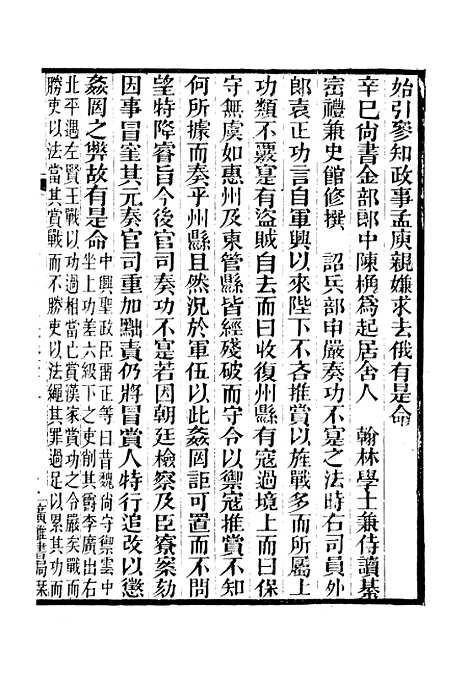 始引參知政事孟庾親嫌求去俄有是命
辛巳尚書金部郎中陳桷爲起居舍人　翰林學士兼侍讀綦
崈禮兼史館修撰　詔兵部申嚴奏功不寔之法時右司員外
郎袁正功言自軍興以來陛下不吝推賞以旌戰多而所屬上
功類不覈寔有盜賊自去而曰收復州縣有寇過境上而曰保
守無虞如惠州及東管縣皆經殘破而守令以禦寇推賞不知
何所據而奏乎州縣且然況於軍伍以此姦罔詎可置而不問
望特降睿旨今後官司奏功不寔若因朝廷檢察及臣寮劾
因事冒窒其元奏官司重加黜責仍將冒賞人特行追改以懲
姦罔之弊故有是命
中興聖政臣畱正等曰昔魏尚禦雲中
坐上功差六級下之吏削其爵李廣出右
北平遇左賢王戰以功過相當亡賞漢家賞功之令嚴矣戰而
勝吏以法當其賞戰而不勝吏以法繩其罪過足以累其功而
廣雅書局栞